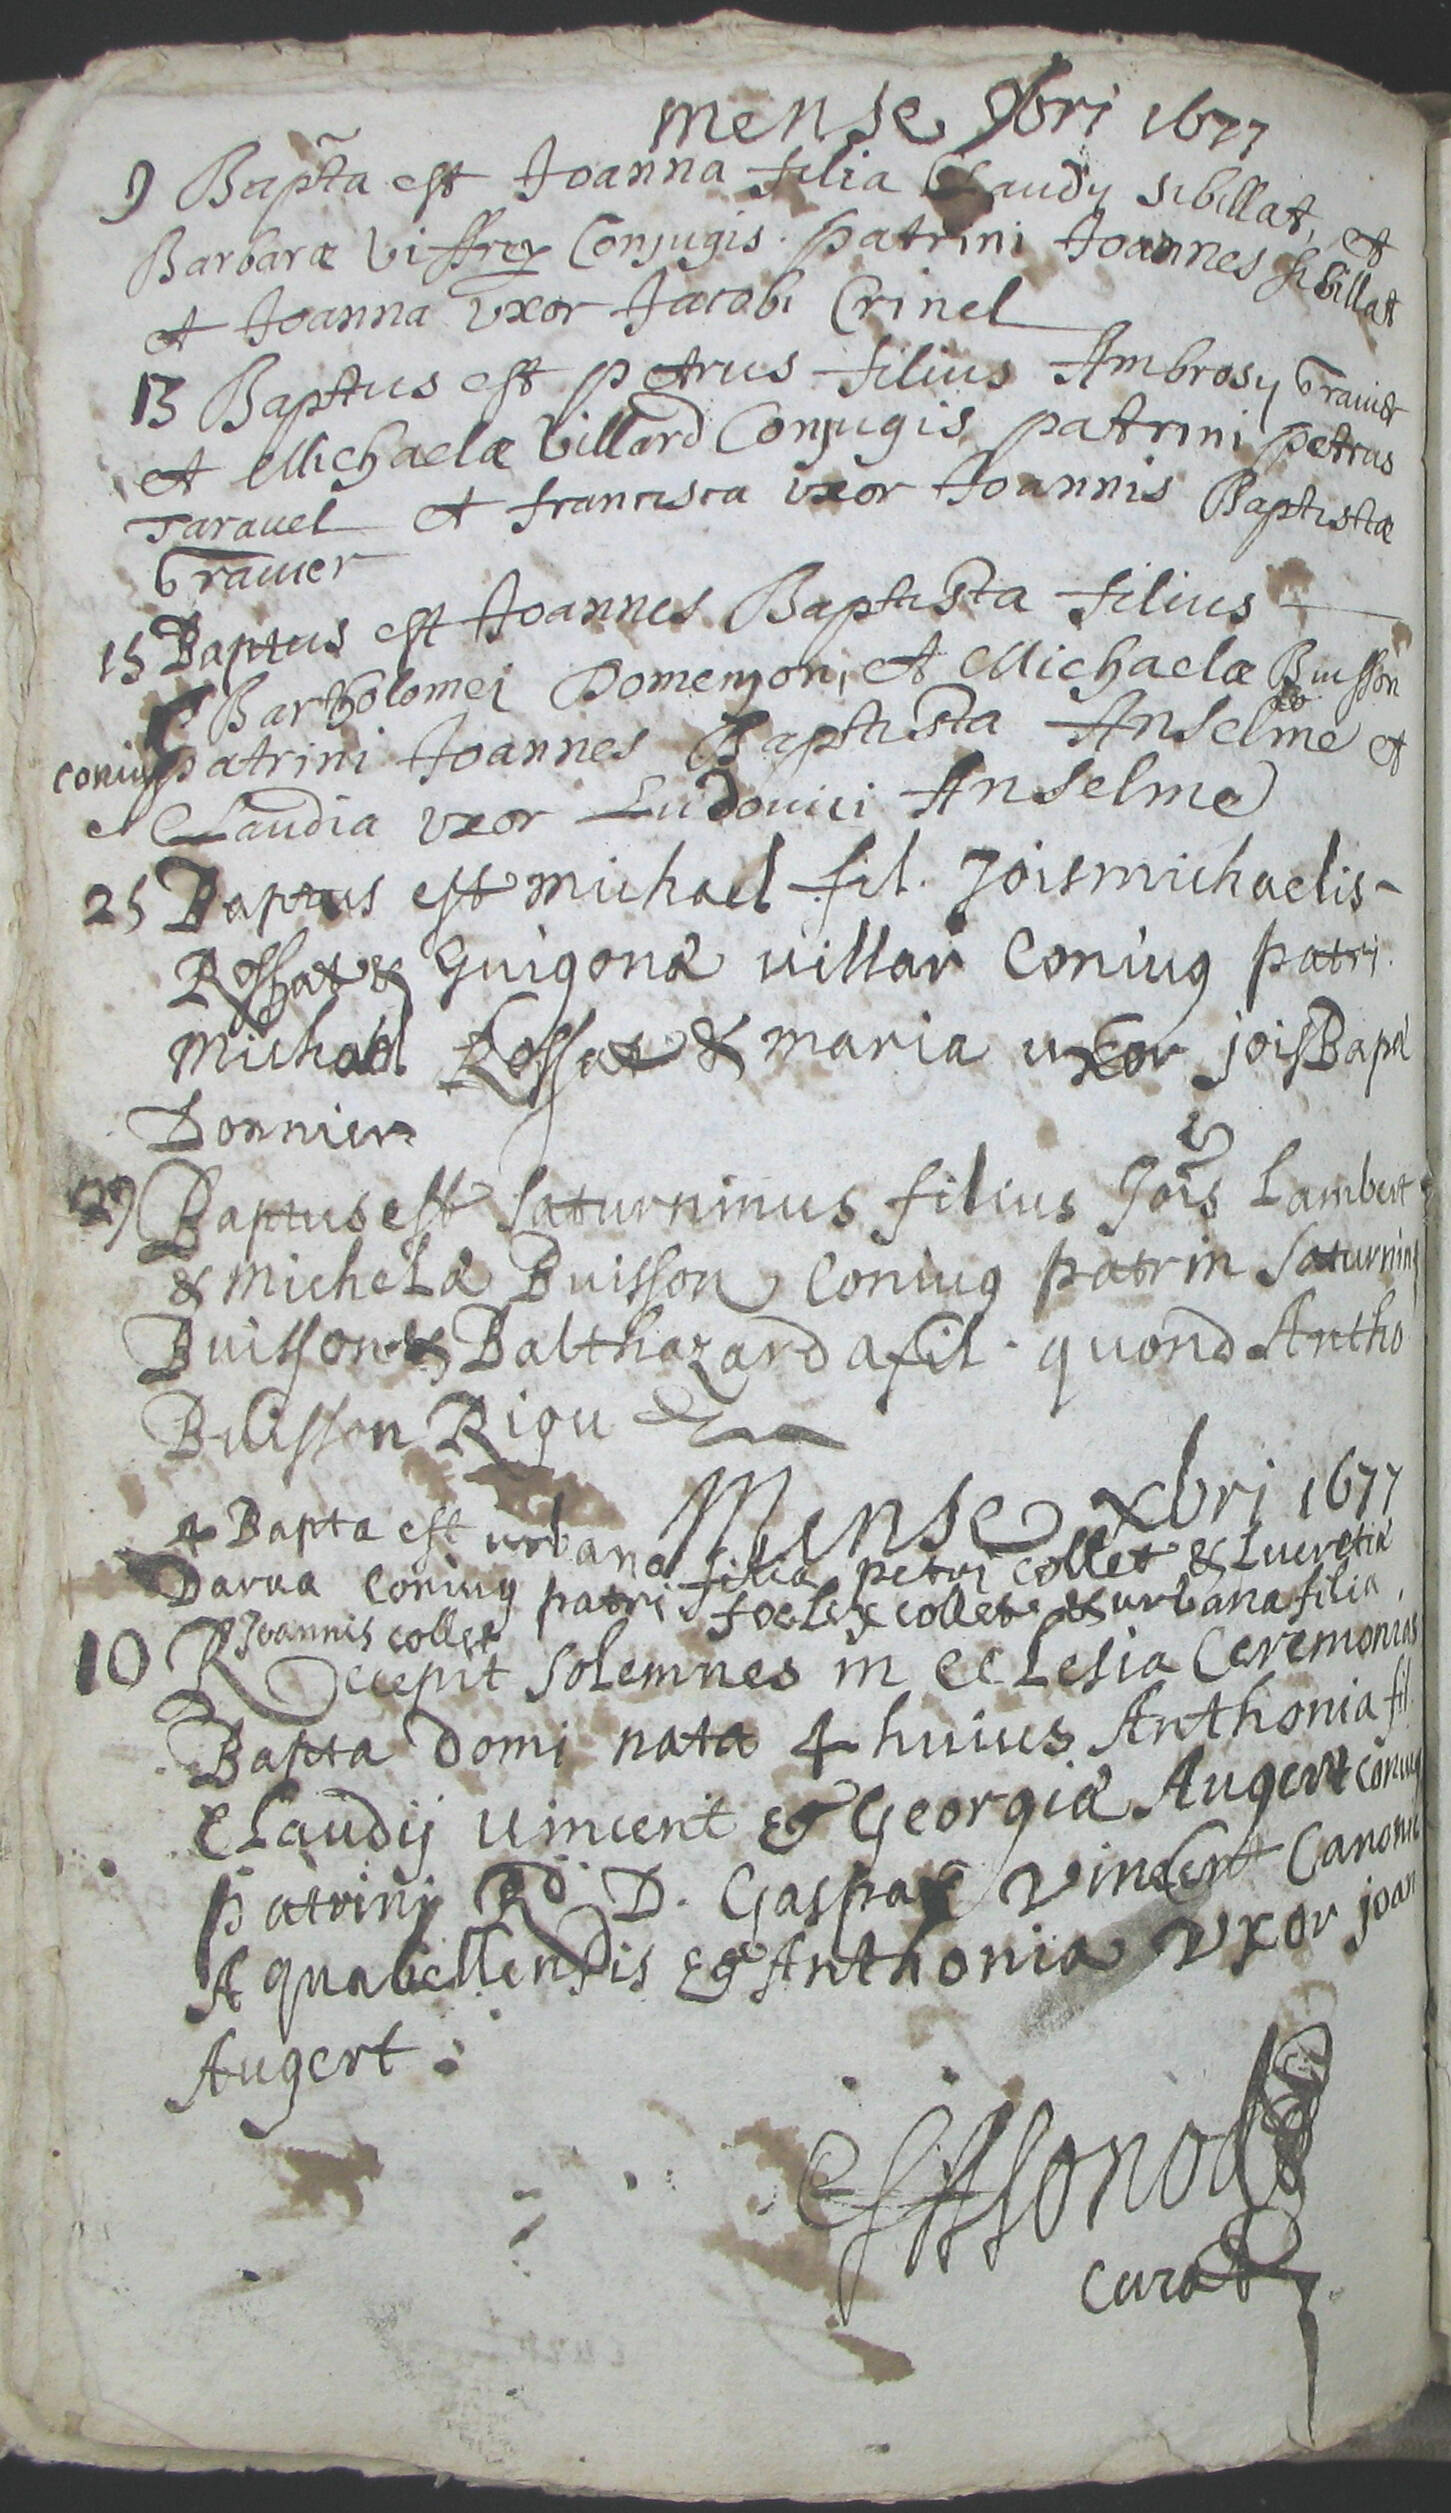 mense 9bri 1677
9 Bapta est Joanna filia Claudij sibillat, et
Barbaræ Viffrey Conjugis. patrini Joannes sibillat
et Joanna vxor Jacobi Crinel
13 Baptus est petrus filius Ambrosij Grauier
et Michaelæ Villard Conjugis patrini petrus
Tarauel et francisca vxor Joannis Baptistæ
Grauier
15 Baptus est Joannes Baptista filius
Bartholomei Domenjon, et Michaelæ Buisson
coniug patrini Joannes Baptista Anselme et
Claudia vxor Ludouici Anselme
25 Baptus est michael fil. Joismichaelis
Rossat & Guigonæ villar Coniug patri.
Michael Rossat & maria uxor joisBapæ
Donnier
29 Baptus est Saturninus filius Jois Lambert
& michelæ Buisson Coniug patrin Saturning
Buisson & Balthazarda fil. quond Antho
Buisson Rigu
Mense xbri 1677
4 Bapta est urbana filia petri collet & Lucretiæ
Darua Coniug patri foelix collet & urbana filia
Joannis collet
10 Recepit Solemnes in ecclesia Ceremonias
Bapta domi nata 4 huius Anthonia fil.
Claudij Vincent & Georgiæ Augert coniug
patrinj Rd D. Gaspar Vincent Canonic
Aquabellensis & Anthonia Vxor joan
Augert
curat